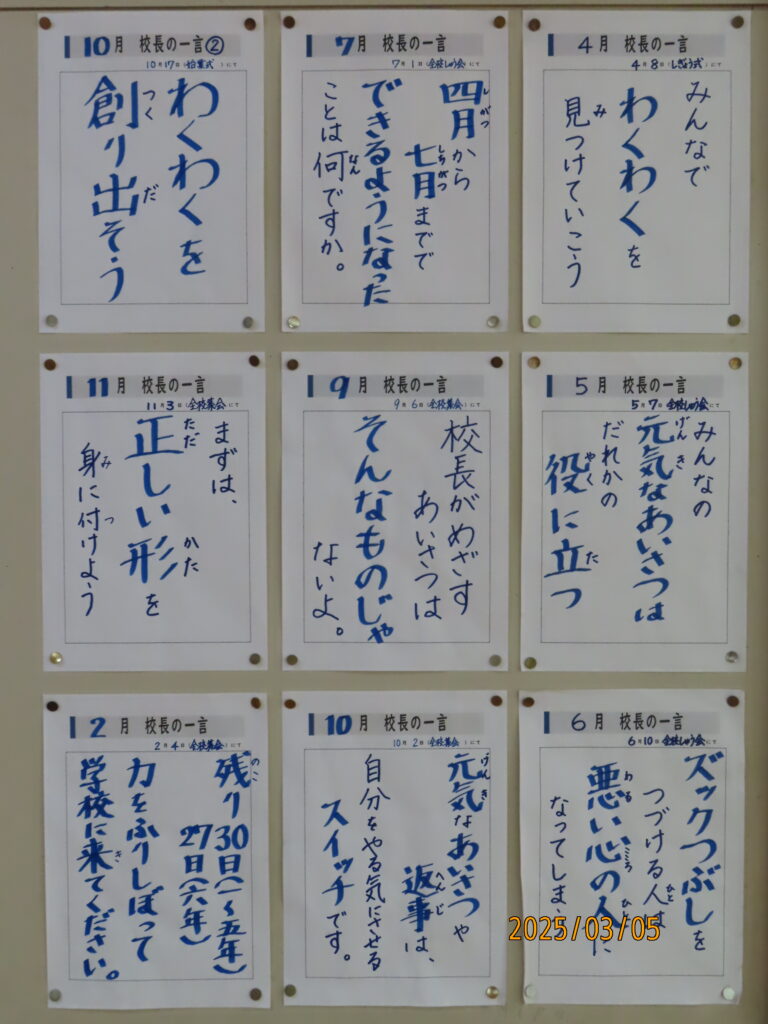 4月 校長の一言
4月8日(しぎょう式)にて
みんなで
わくわくを
見つけていこう
5月 校長の一言
5月7日(全校しゅう会)にて
みんなの
元気なあいさつは
だれかの
役に立つ
6月 校長の一言
6月10日(全校しゅう会)にて
ズックつぶしを
つづける人は
悪い心の人に
なってしま
7月 校長の一言
7月1日(全校しゅう会)にて
四月から
七月までで
できるようになった
ことは何ですか。
9月 校長の一言
9月6日(全校集会)にて
校長がめざす
あいさつは
そんなものじゃ
ないよ。
10月 校長の一言
10月2日(全校集会)にて
元気なあいさつや
返事は、
自分をやる気にさせる
スイッチです。
10月 校長の一言②
10月17日(始業式)にて
わくわくを
創り出そう
11月 校長の一言
11月3日(全校集会)にて
まずは、
正しい形を
身に付けよう
2月 校長の一言
2月4日(全校集会)にて
残り30日(一～五年)
27日(六年)
力をふりしぼって
学校に来てください。
2025/03/05